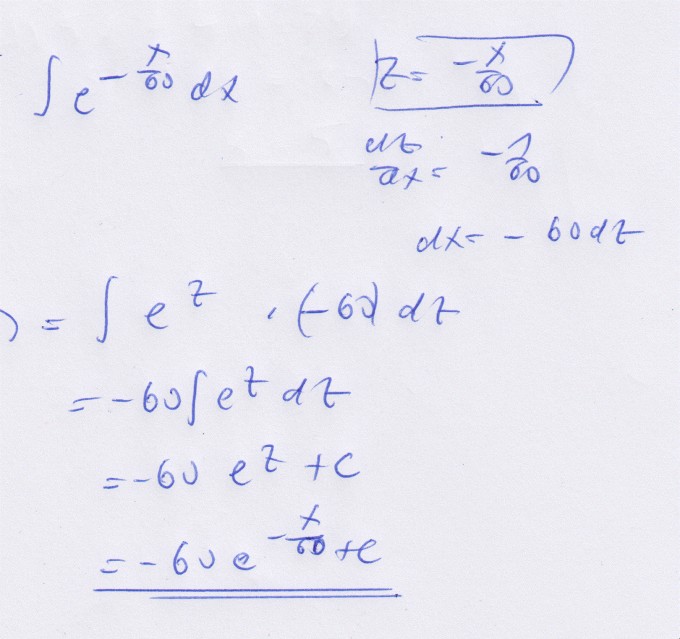 ∫ e^{-x/60} dx
z = -x/60
dz/dx = -1/60
dx = - 60 dz
= ∫ e^z · (-60) dz
= -60 ∫ e^z dz
= -60 e^z + c
= -60 e^{-x/60} + c